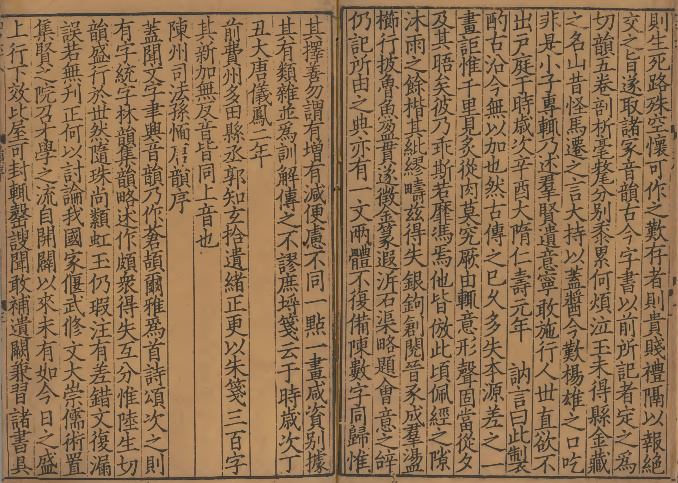 則生死路殊空懷可作之歎存者則貴賤禮隔以報絶
交之旨遂取諸家音韻古今字書以前所記者定之爲
切韻五卷剖析毫氂分别黍累何煩泣玉未得縣金藏
之名山昔怪馬遷之言大持以蓋醬今歎楊雄之口吃
非是小子專輒乃述羣賢遺意寧敢施行人丗直欲不
出戸庭于時歳次辛酉大隋仁壽元年 訥言曰此製
酌古沿今無以加也然古傳之已久多失本源差之一
畫詎惟千里見多從肉莫究厥由輒意形聲固當從夕
及其晤矣彼乃乖斯若靡馮焉他皆倣此頃佩經之隙
沐雨之餘楷其紕繆疇兹得失銀鉤創閲晉豕成羣盪
櫛行披魯魚盈貫遂徵金篆遐泝石渠略題會意之辝
仍記所由之典亦有一文兩體不復備陳數字同歸惟
其擇善勿謂有增有減便慮不同一點一畫咸資别據
其有類雜並爲訓解傳之不謬庶埒箋云于時歳次丁
丑大唐儀鳳二年
前費州多田縣丞郭知玄拾遺緒正更以朱箋三百字
其新加無反音皆同上音也
陳州司法孫愐唐韻序
蓋聞文字聿興音韻乃作蒼頡爾雅爲首詩頌次之則
有字統字林韻集韻略述作頗衆得失互分惟陸生切
韻盛行於世然隨珠尚纇虹玉仍瑕注有差錯文復漏
誤若無刋正何以討論我國家偃武修文大崇儒術置
集賢之院召才學之流自開闢以來未有如今日之盛
上行下效比屋可封輒罄謏聞敢補遺闕兼習諸書具